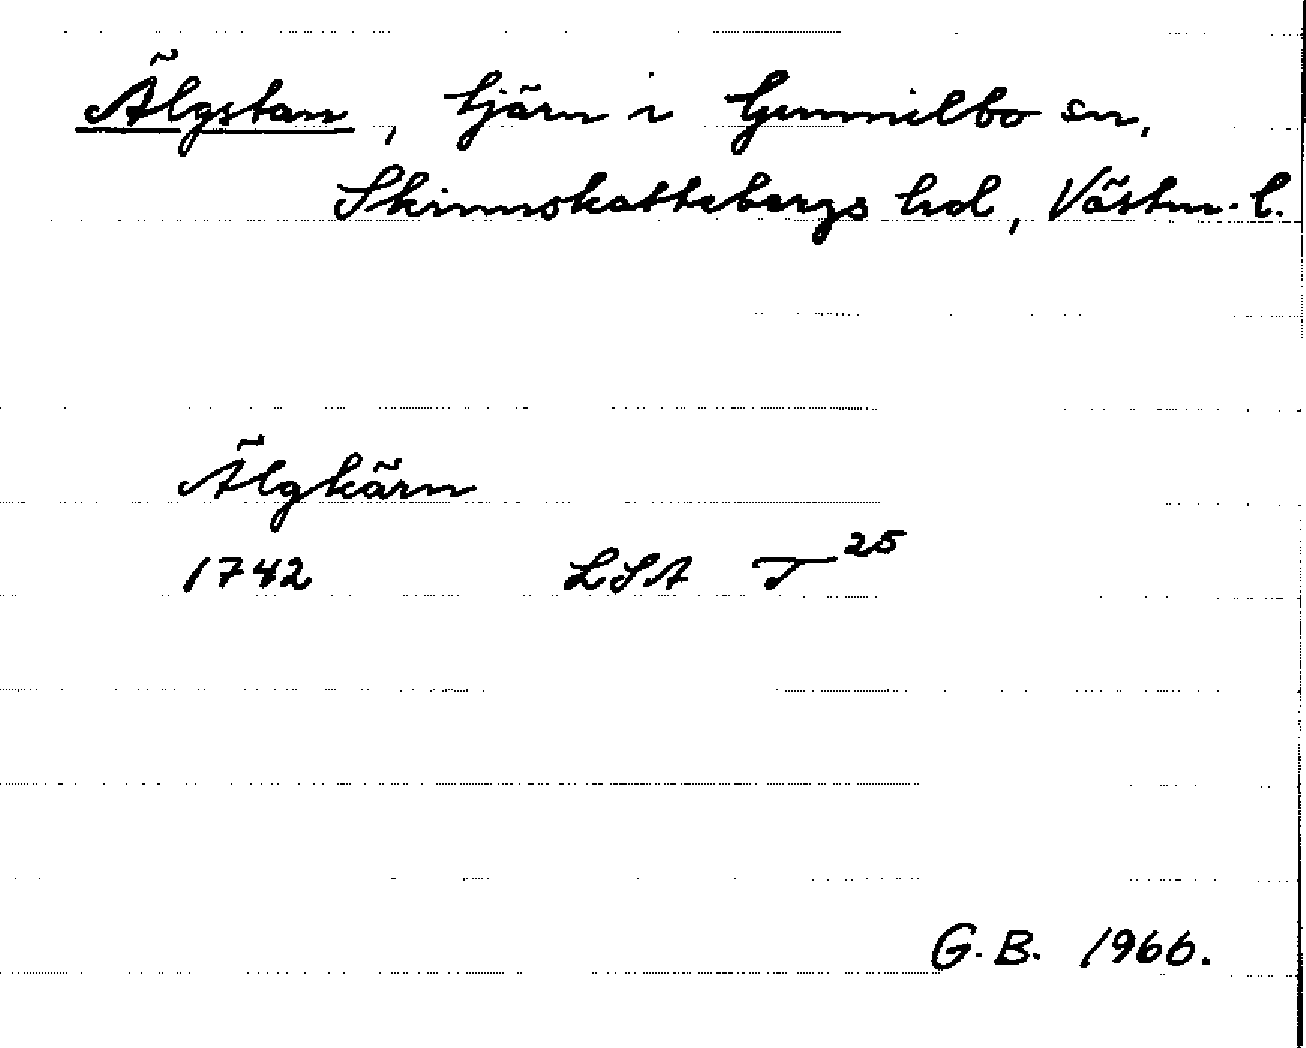 Älgstan, tjärn i Gunnilbo sn,
Skinnskattebergs hd, Västm. l.
Älgkärn
1742 LSA T 25
G. B. 1966.